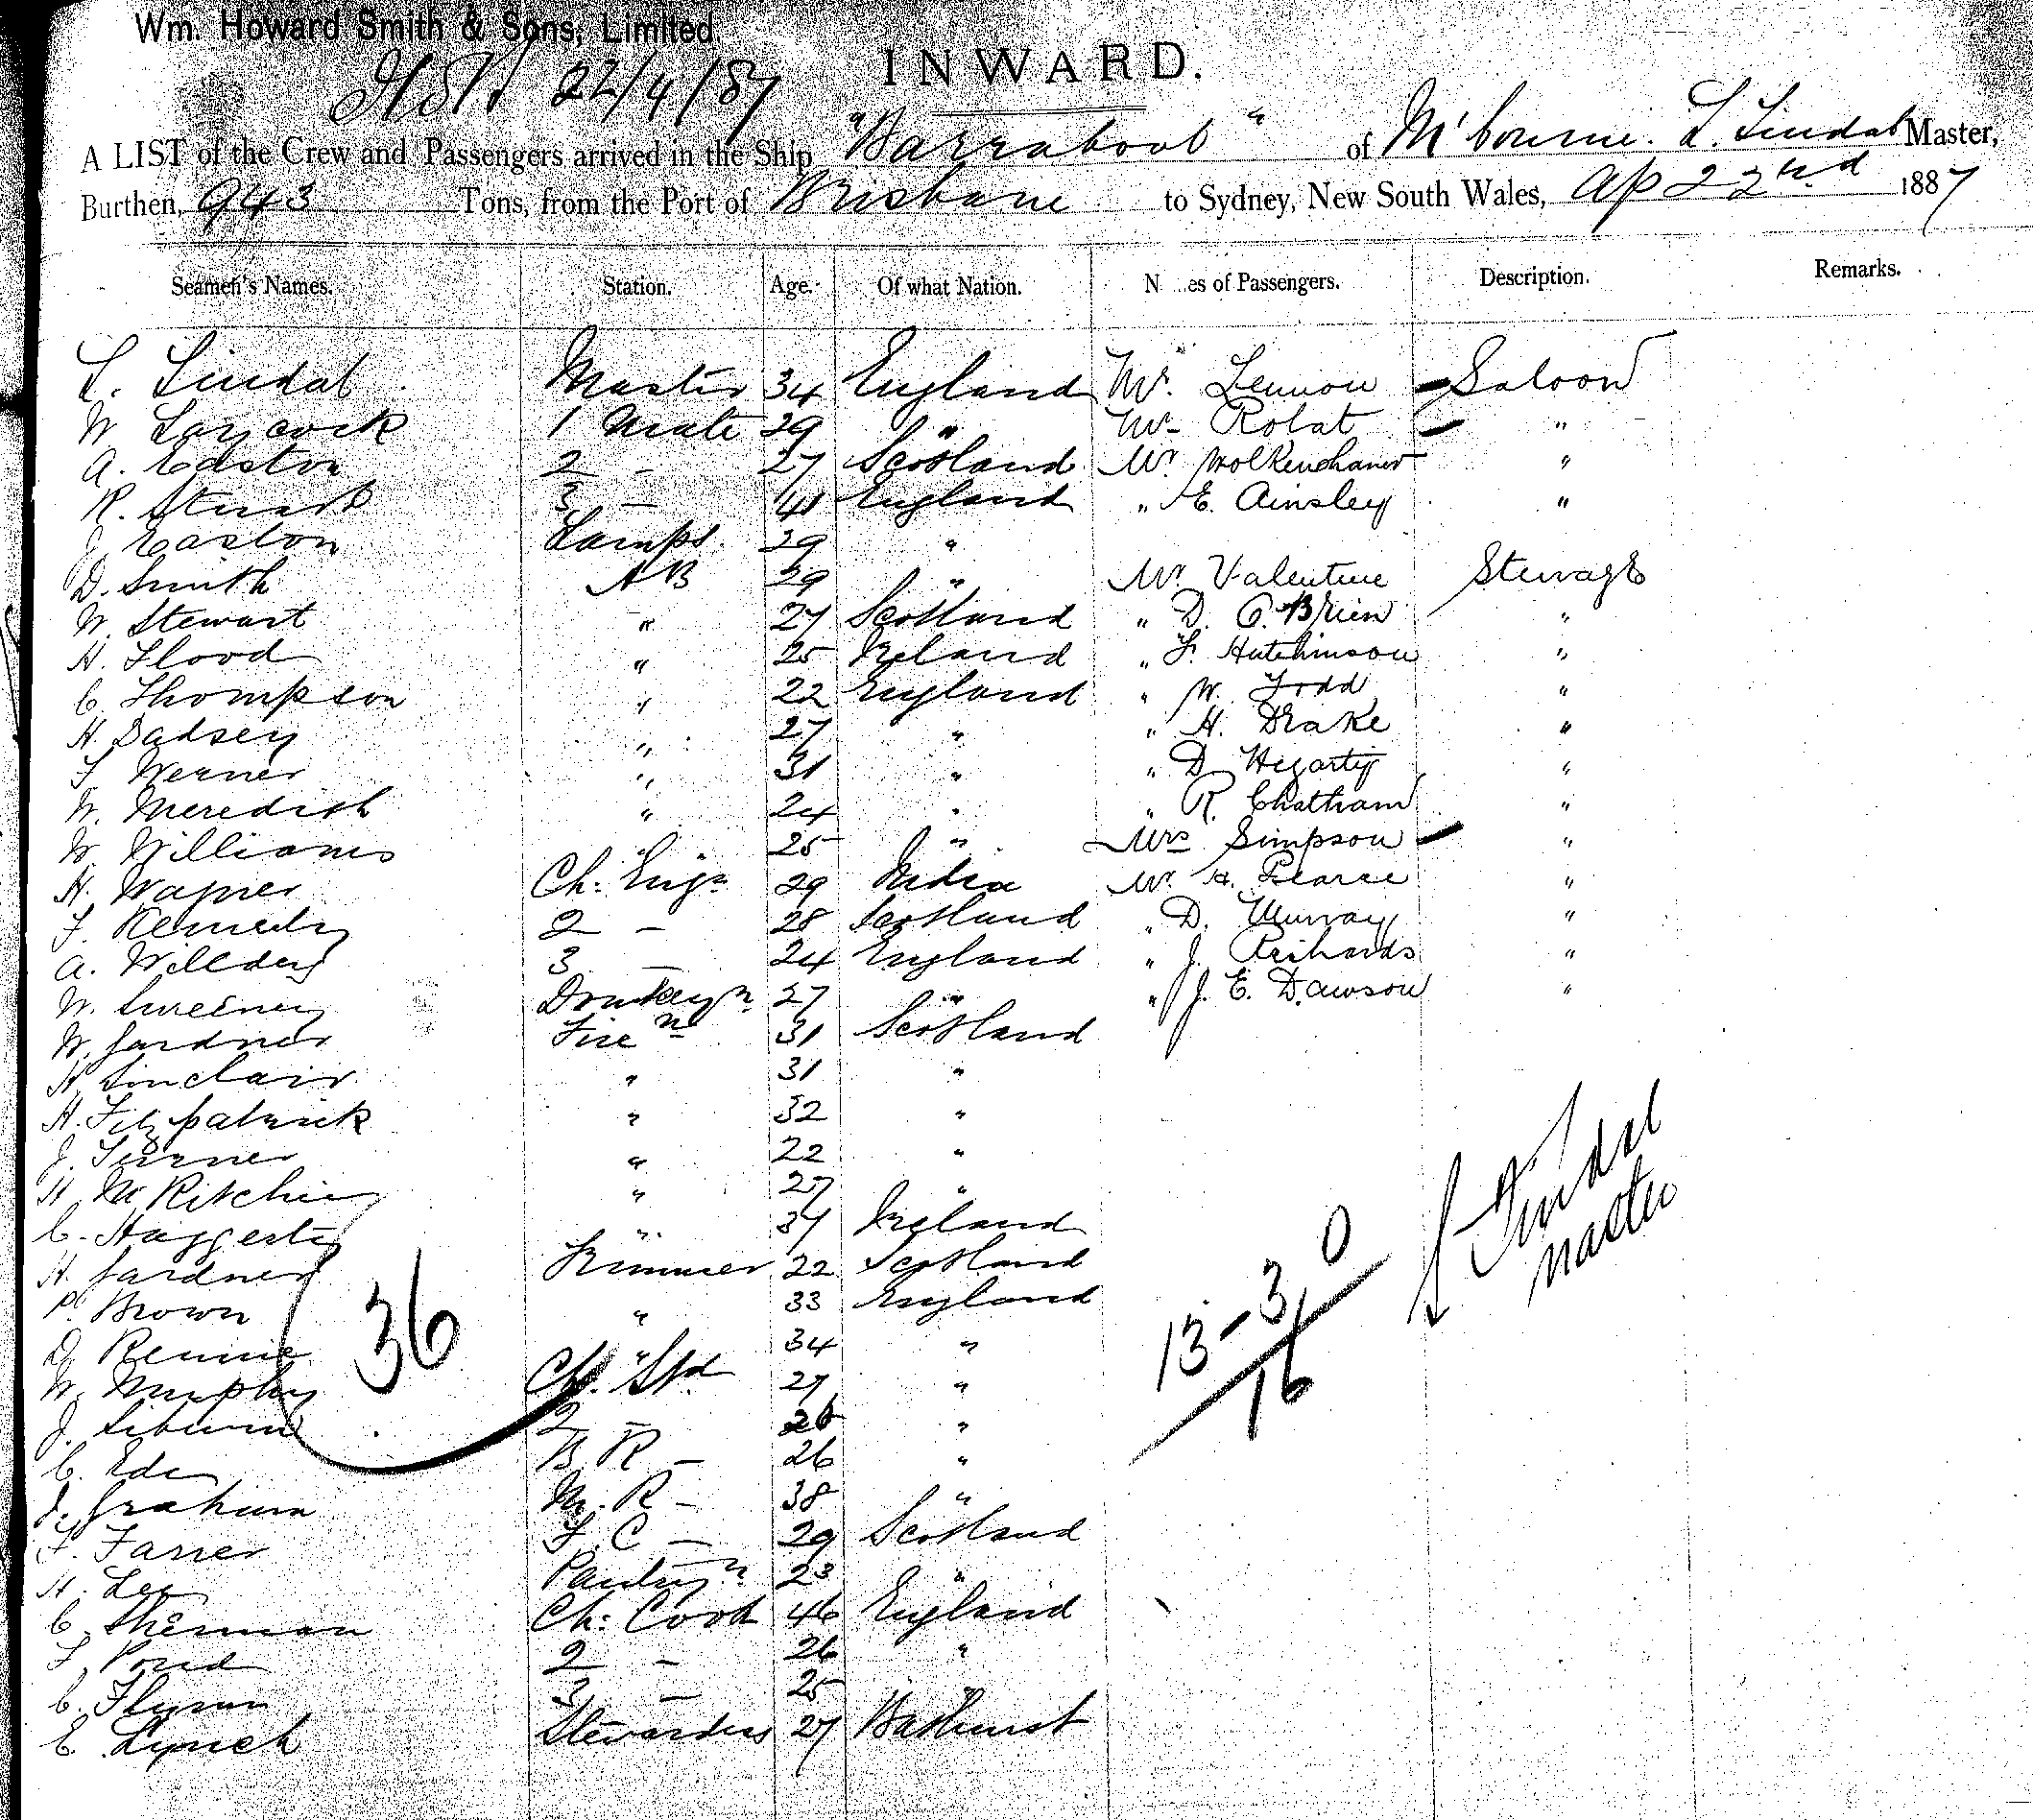 Wm. Howard Smith & Sons, Limited.
22/4/87
INWARD.
A LIST of the Crew and Passengers arrived in the Ship "Barrabool" of M'bourne. L. Lindal Master,
Burthen, 943 Tons, from the Port of Brisbane to Sydney, New South Wales, Ap 22nd 1887
Seamen's Names. Station. Age. Of what Nation. N es of Passengers. Description. Remarks.
L. Lindal Master 34 England Mr. Lennon - Saloon
W Laycock 1 Mate 29 " Mr Robat - "
A. Easton 2 - 27 Scotland Mr "
R. Stuart 3 - 41 England " E. Ainsley "
J Easton Lamps. 29 "
D. Smith AB 29 " Mr Valentine Steerage
W. Stewart " 27 Scotland " D. O.Brien "
H. Flood " 25 Ireland " F. Hutchinson "
C. Thompson " 22 England " W. Todd "
H. Dadsey " 27 " " H. Drake "
F Werner " 31 " " D Hegarty "
W. Meredith " 24 " " R. Chatham "
W. Williams " 25 " Mrs Simpson - "
H. Wagner Ch. Engr 29 India Mr H. Pearce "
F. Kennedy 2 - 28 Scotland " D. Murray "
A. Willdey 3 - 24 England " J. Richards "
W. Sweeney Donkeyn 27 " " J. E. Dawson "
W. Gardner Firen 31 Scotland
H Sinclair " 31 "
H. Fitzpatrick " 32 "
J. Turner " 22 "
H McRitchie " 27 "
C. Haggerty " 37 Ireland
H. Gardner Trimmer 22 Scotland
P. Brown " 33 England
D. Rennie " 34 "
W. Murphy Ch. Std 27 "
J. 2 - 26 "
C. Ede B. R - 26 "
J. Graham M. R - 38 "
F. Farrer F. C - 29 Scotland
H. Lee Pantryn 23 "
C. Sherman Ch: Cook 46 England
F. Pond 2 - 26 "
C. Flynn 3 - 25 "
E. Lynch Stewardess 27 Bathurst
36
13-3 0
16
L Lindal
Master